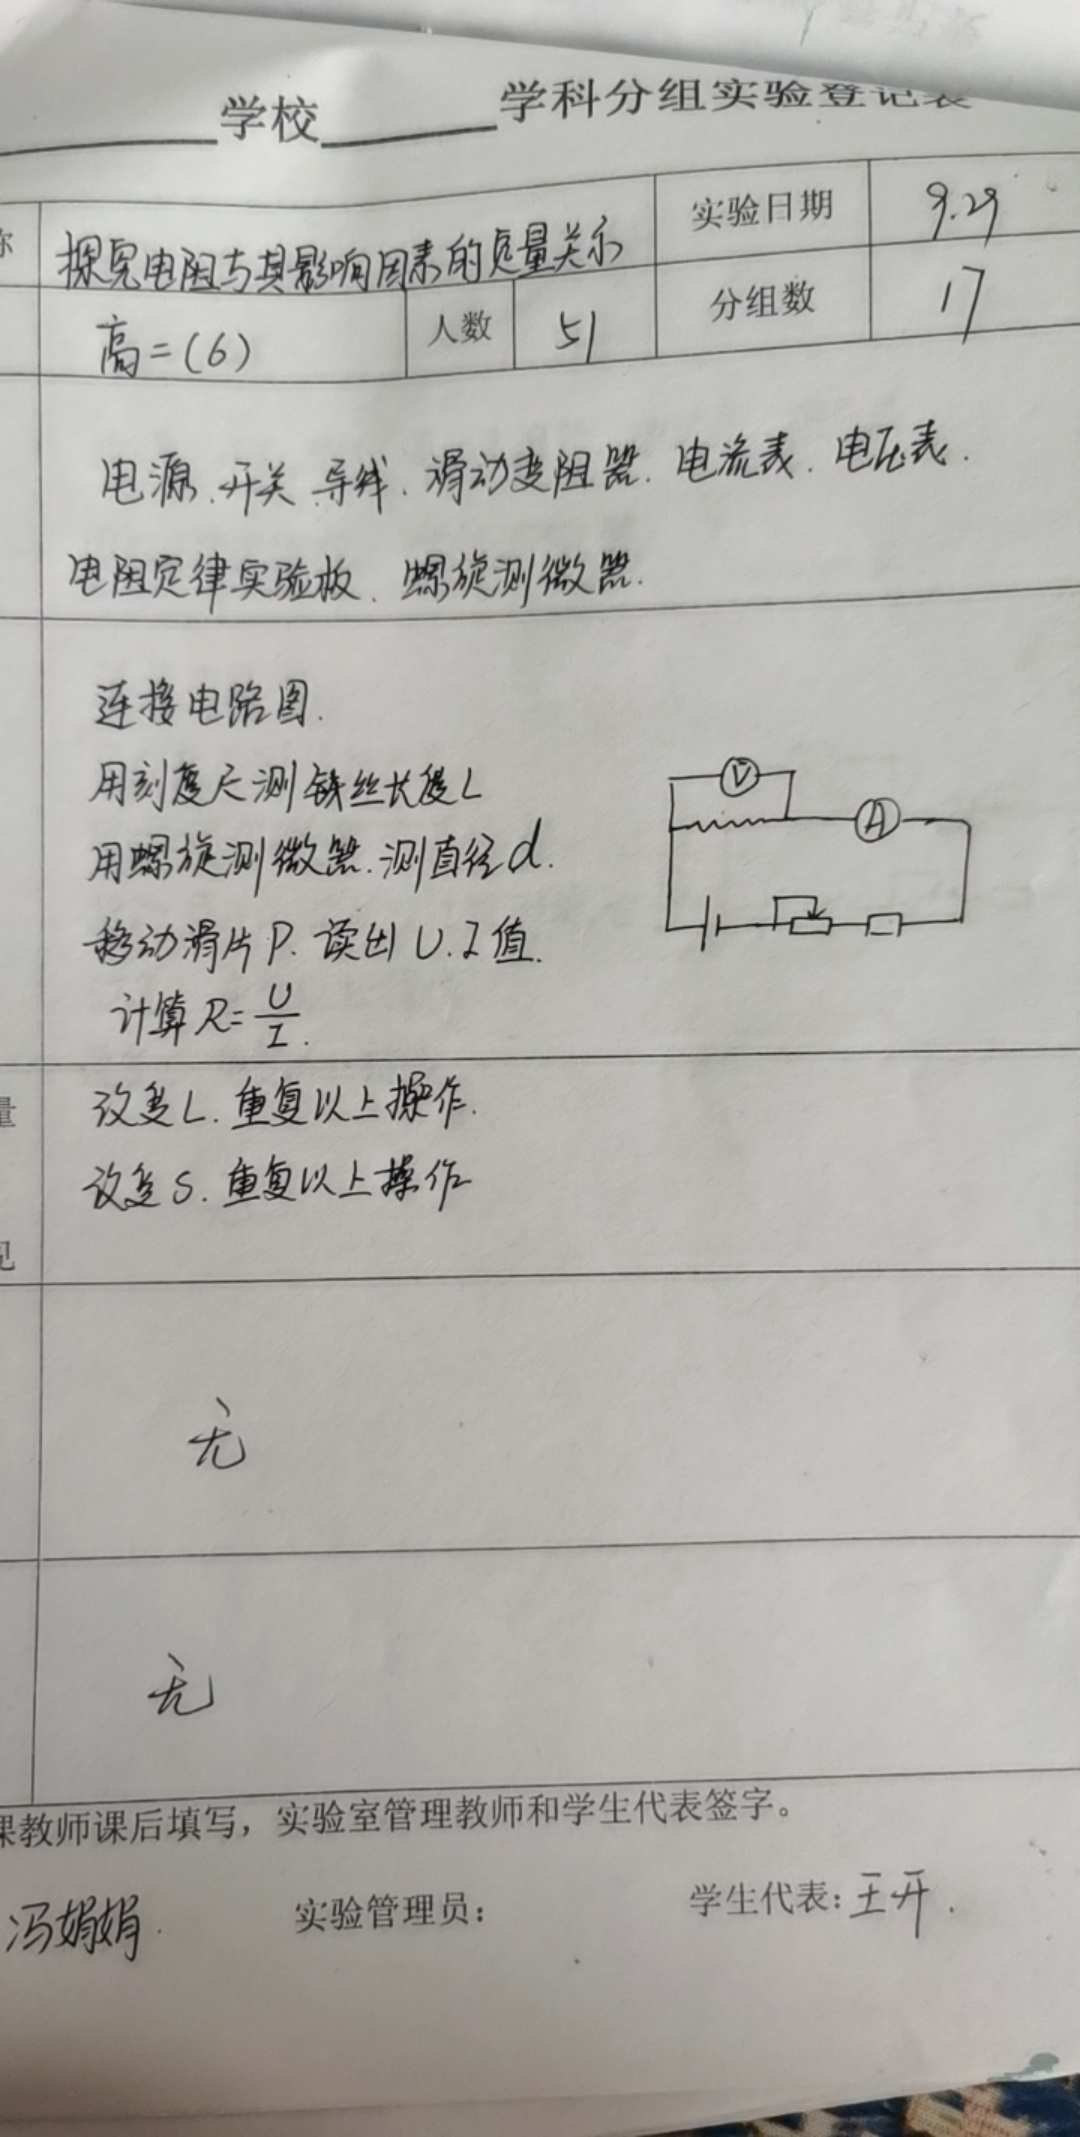 学校 学科分组实验登记表
称 探究电阻与其影响因素的定量关系 实验日期 9.29
高二(6) 人数 51 分组数 17
电源、开关、导线、滑动变阻器、电流表、电压表.
电阻定律实验板、螺旋测微器.
连接电路图.
用刻度尺测铁丝长度L
用螺旋测微器.测直径d.
移动滑片P.读出U.I值.
计算R=U/I.
V
A
量 改变L.重复以上操作.
改变S.重复以上操作
见
无
无
课教师课后填写，实验室管理教师和学生代表签字。
冯娟娟 实验管理员： 学生代表：王开.